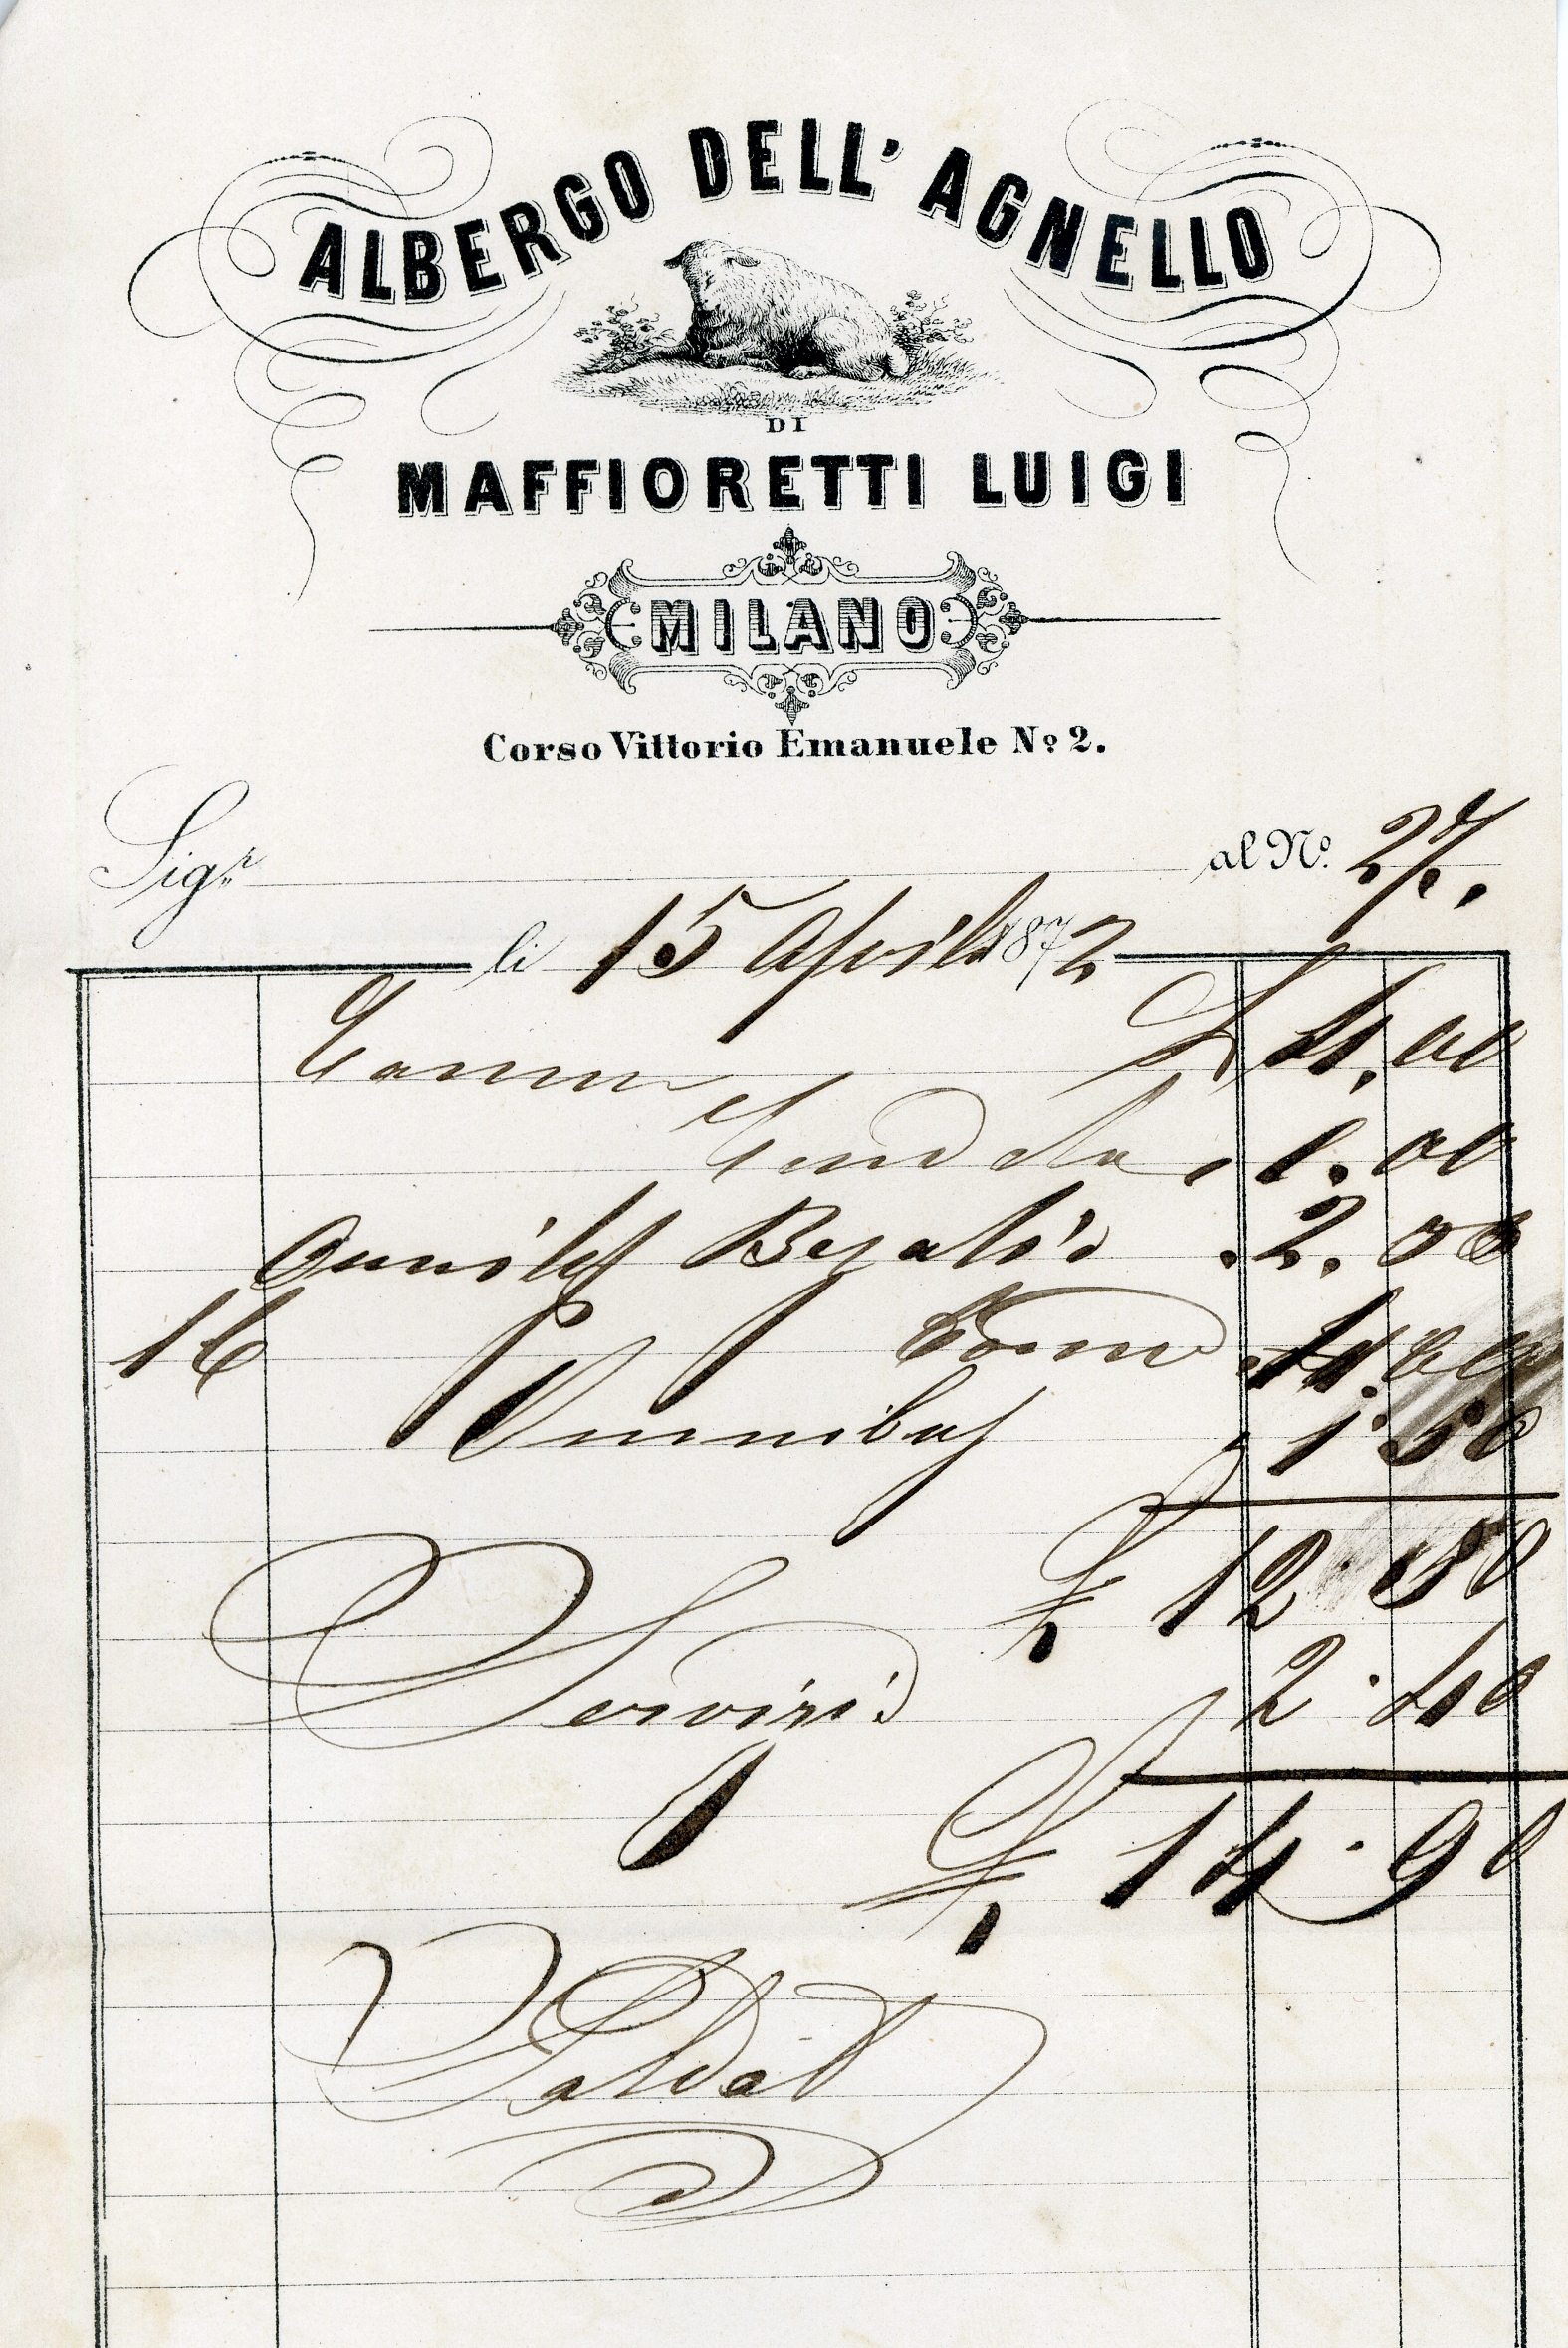 ALBERGO DELL' AGNELLO
DI
MAFFIORETTI LUIGI
MILANO
Corso Vittorio Emanuele Nº 2.
Sigr. al Nº. 27.
li 15 Aprile 1872
L 4,00
Candela 1.00
2.00
16 4.00
Omnibus 1.50
£ 12.50
Servizio 2.40
£ 14.90
Saldato